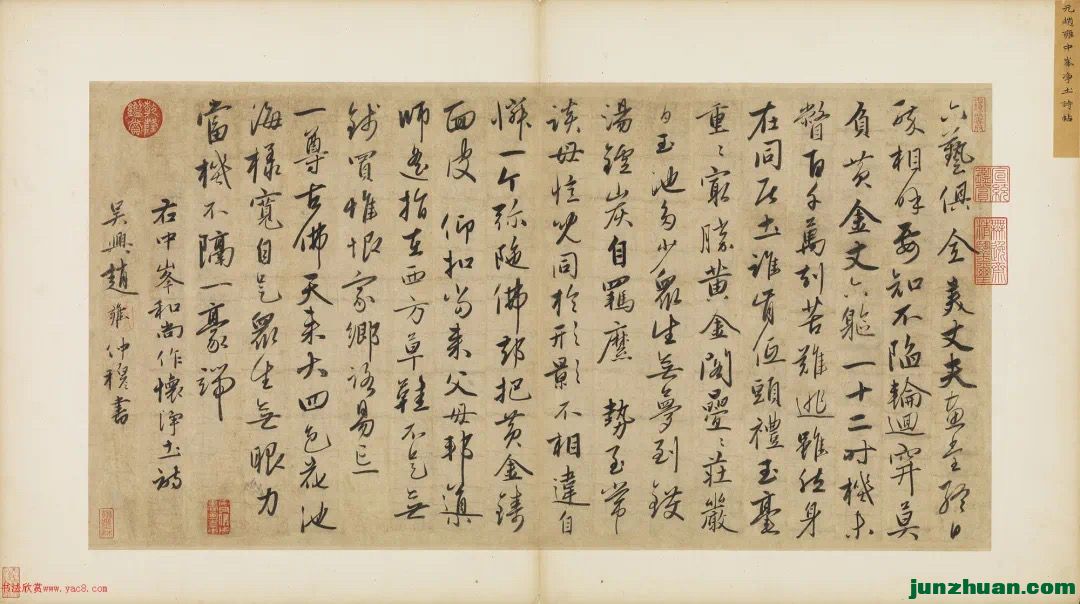 元趙雍中峯淨土詩帖
六藝俱全美丈夫畫堂終日
孩相呼要知不陷輪迴穽莫
負黃金丈六軀一十二時機未
瞥百千萬刼苦難逃雖然身
在同居土誰肯低頭禮玉毫
重重寂勝黃金閣疊疊莊嚴
白玉池多少眾生無夢到鑊
湯鑪炭自羈縻勢至常
談母憶兒同於形影不相違自
憐一个彌陀佛却把黃金鑄
面皮仰扣當來父母
師遙指在西方草鞋不是無
錢買惟恨家鄉路易忘
一尊古佛天來大四色花池
海樣寬自是眾生無眼力
當機不隔一豪端
右中峯和尚作懷淨土詩
吳興趙雍仲穆書
乾隆鑑賞
宣統鑑賞
無逸齋精璽
书法欣赏www.yac8.com
junzhuan.com